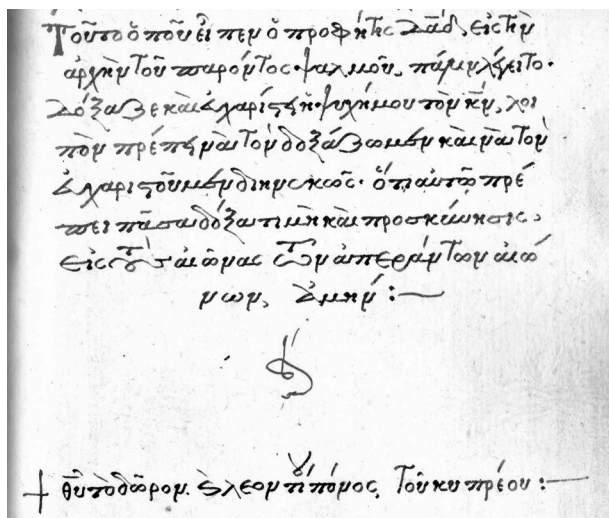 Τοῦτο ὁποῦ εἶπεν ὁ προφήτης δαδ, εἰς τὴν
ἀρχὴν τοῦ παρόντος ψαλμοῦ, πάλιν λέγει το·
δόξαζε καὶ εὐχαρίστει ψυχή μου τὸν κν, λοι
πὸν πρέπει νὰ τὸν δοξάζωμεν καὶ νὰ τὸν
εὐχαριστοῦμεν διηνεκῶς· ὅτι αὐτῶ πρέ
πει πᾶσα δόξα τιμὴ καὶ προσκύνησις,
εἰς τοὺς αἰῶνας τῶν ἀπεράντων αἰώ
νων, ἀμήν :—
+ θυ τὸ δῶρον. καὶ λέοντος πόνος. τοῦ κυπρέου :—